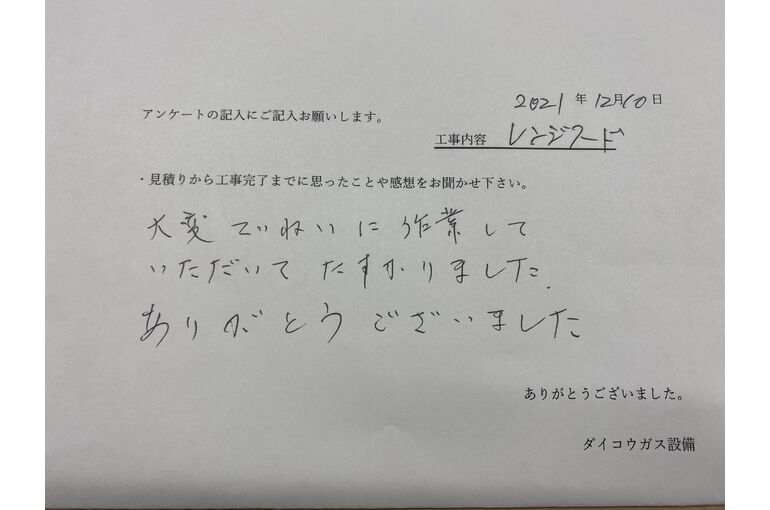 2021年12月10日
アンケートの記入にご記入お願いします。
工事内容 レンジフード
・見積りから工事完了までに思ったことや感想をお聞かせ下さい。
大変ていねいに作業して
いただいてたすかりました。
ありがとうございました
ありがとうございました。
ダイコウガス設備